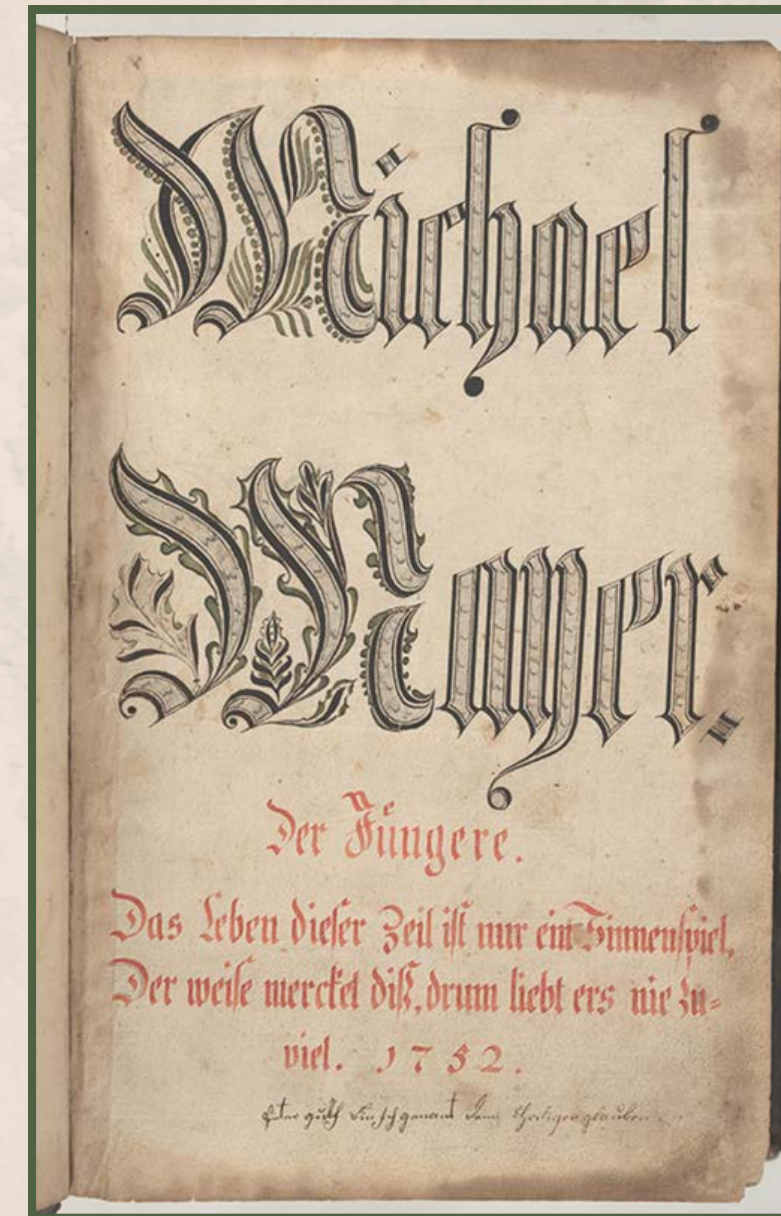 Michael
Mayer.
Der Jüngere.
Das Leben dieser Zeit ist nur ein Sinnenspiel,
Der weise mercket diß, drum liebt ers nie zu=
viel. 1752.